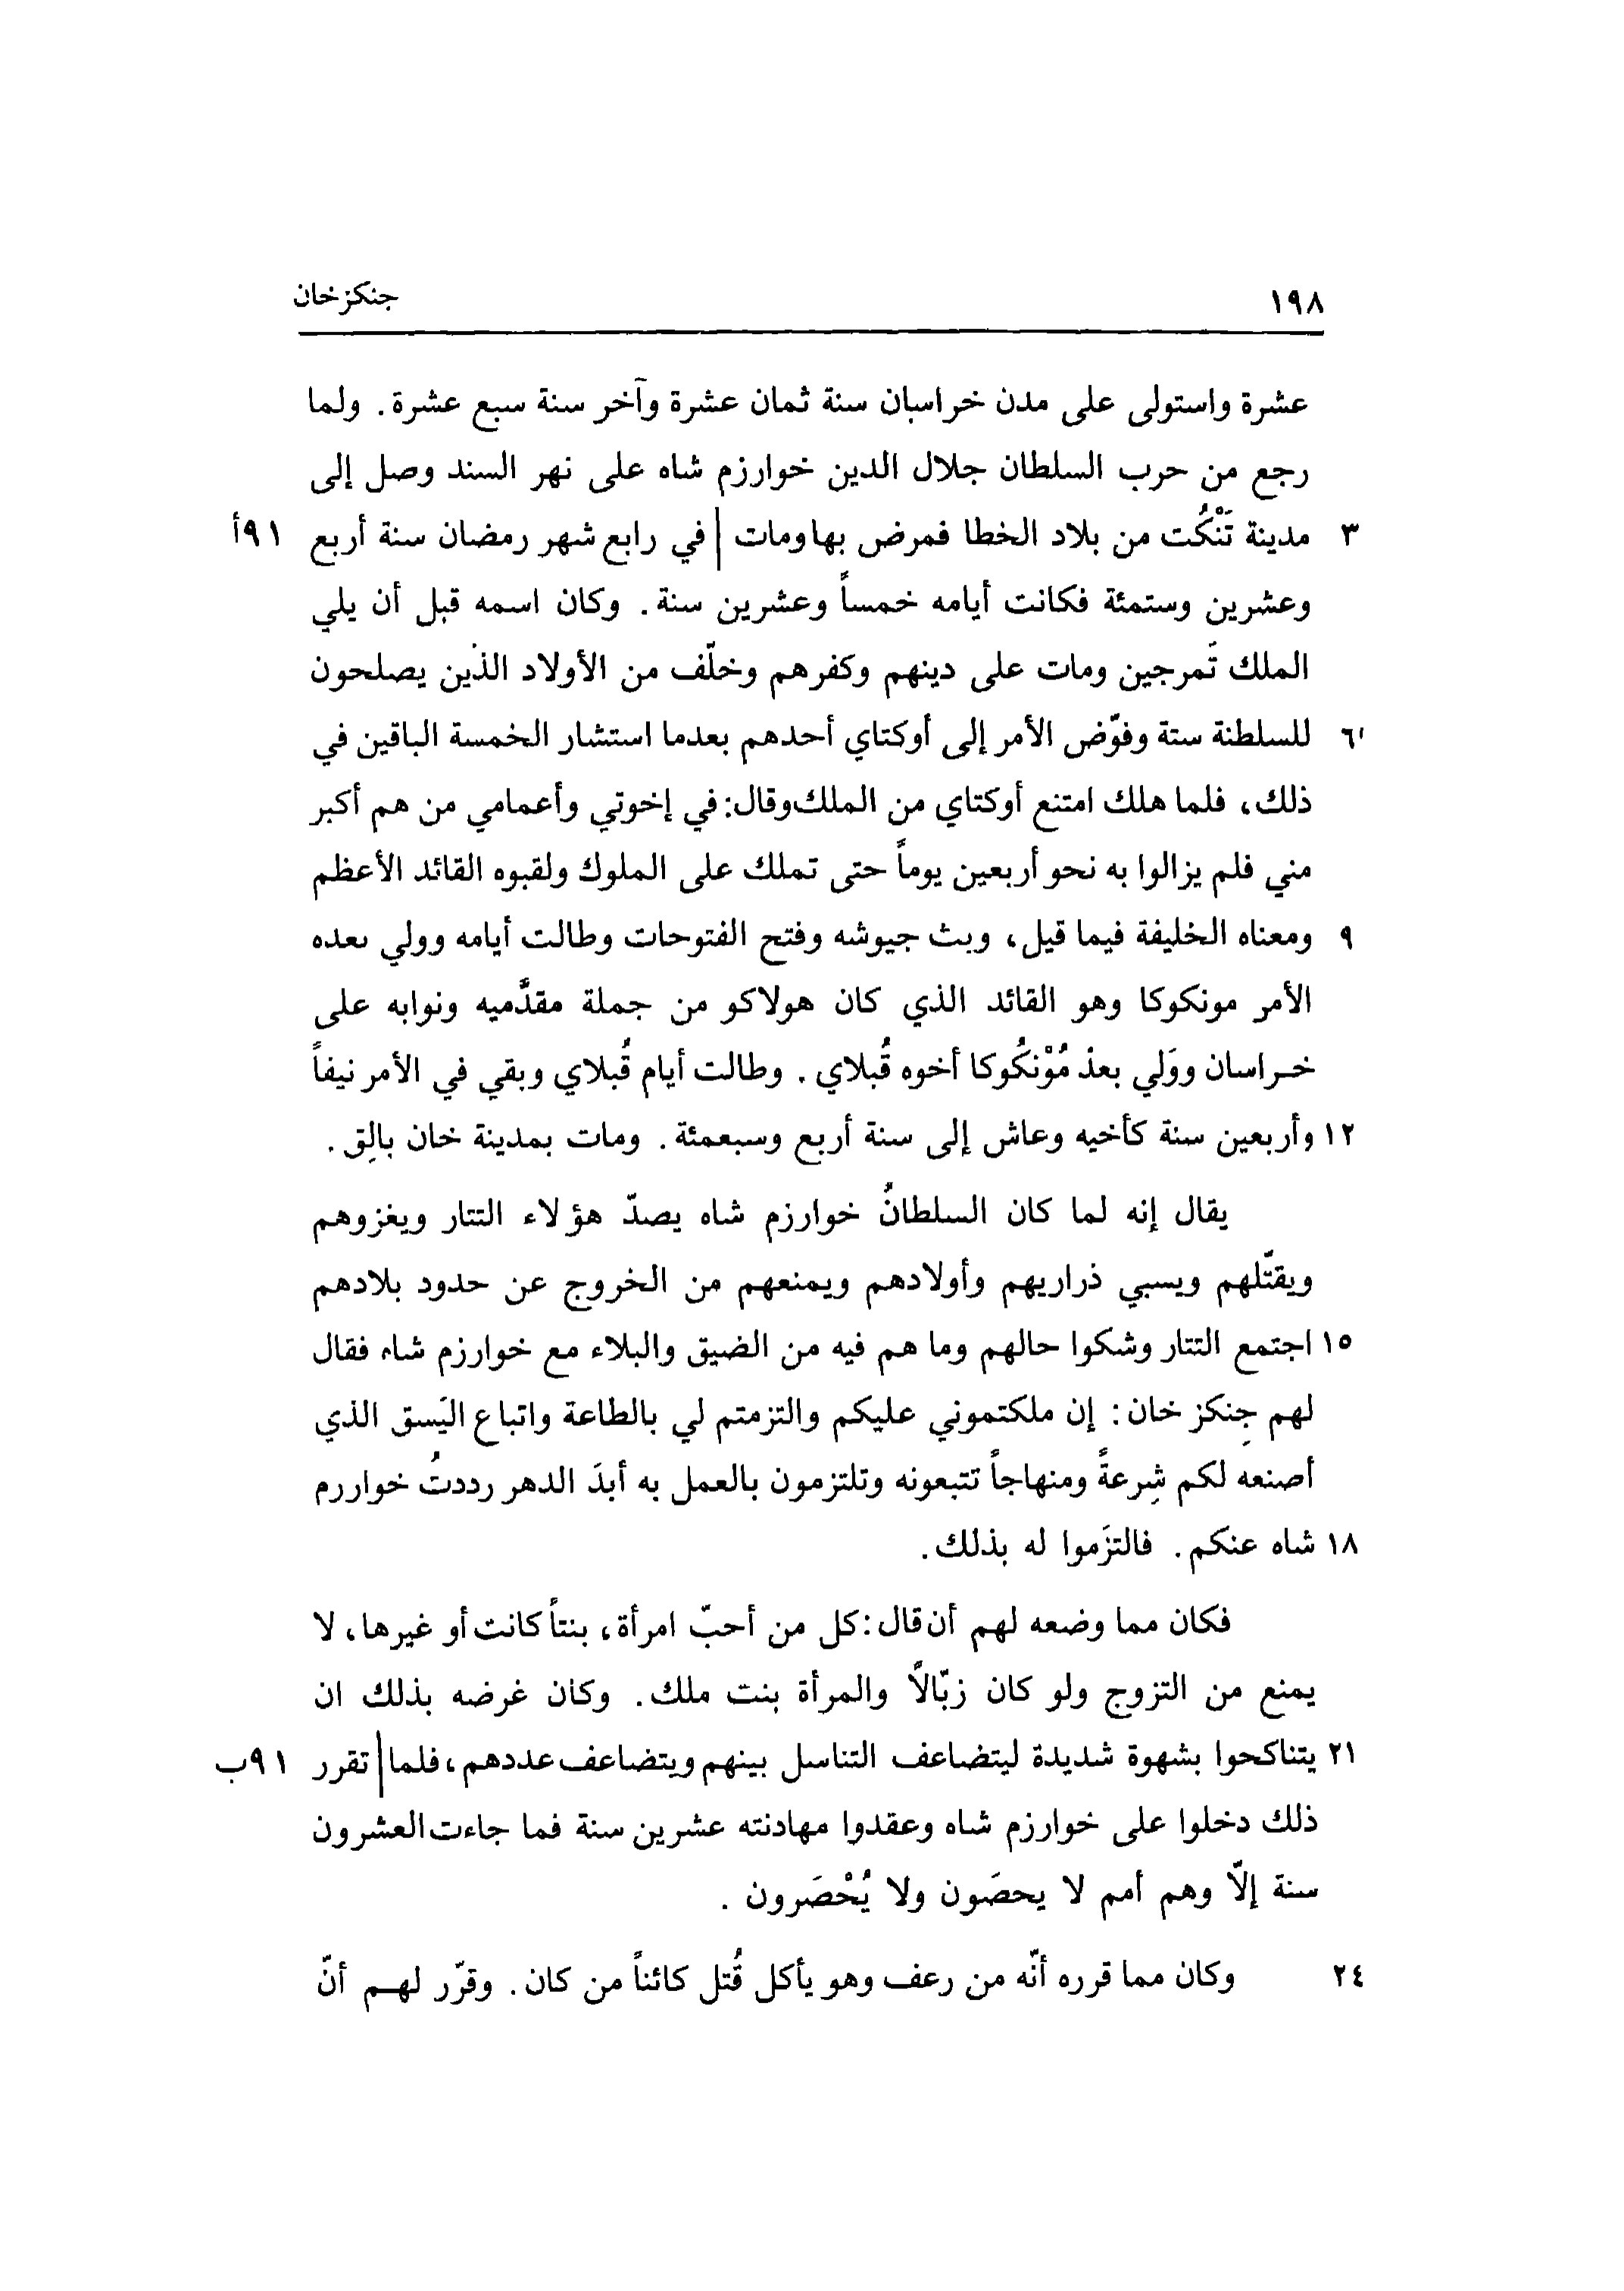 ١٩٨ جنكزخان
عشرة واستولى على مدن خراسان سنة ثمان عشرة وآخر سنة سبع عشرة. ولما
رجع من حرب السلطان جلال الدين خوارزم شاه على نهر السند وصل إلى
٣ مدينة تَنْكُت من بلاد الخطا فمرض بها ومات | في رابع شهر رمضان سنة أربع ٩١أ
وعشرين وستمئة فكانت أيامه خمساً وعشرين سنة. وكان اسمه قبل أن يلي
الملك تَمرجين ومات على دينهم وكفرهم وخلّف من الأولاد الذين يصلحون
٦ للسلطنة ستة وفوّض الأمر إلى أوكتاي أحدهم بعدما استشار الخمسة الباقين في
ذلك، فلما هلك امتنع أوكتاي من الملك وقال: في إخوتي وأعمامي من هم أكبر
مني فلم يزالوا به نحو أربعين يوماً حتى تملك على الملوك ولقبوه القائد الأعظم
٩ ومعناه الخليفة فيما قيل، وبث جيوشه وفتح الفتوحات وطالت أيامه وولي بعده
الأمر مونكوكا وهو القائد الذي كان هولاكو من جملة مقدَّميه ونوابه على
خراسان ووَلي بعد مُوْنكُوكا أخوه قُبلاي. وطالت أيام قُبلاي وبقي في الأمر نيفاً
١٢ وأربعين سنة كأخيه وعاش إلى سنة أربع وسبعمئة. ومات بمدينة خان بالِق.
يقال إنه لما كان السلطانُ خوارزم شاه يصدّ هؤلاء التتار ويغزوهم
ويقتّلهم ويسبي ذراريهم وأولادهم ويمنعهم من الخروج عن حدود بلادهم
١٥ اجتمع التتار وشكوا حالهم وما هم فيه من الضيق والبلاء مع خوارزم شاه فقال
لهم جِنكز خان: إن ملكتموني عليكم والتزمتم لي بالطاعة واتباع اليَسق الذي
أصنعه لكم شِرعةً ومنهاجاً تتبعونه وتلتزمون بالعمل به أبدَ الدهر رددتُ خواررم
١٨ شاه عنكم. فالتزَموا له بذلك.
فكان مما وضعه لهم أن قال: كل من أحبّ امرأة، بنتاً كانت أو غيرها، لا
يمنع من التزوج ولو كان زبّالاً والمرأة بنت ملك. وكان غرضه بذلك ان
٢١ يتناكحوا بشهوة شديدة ليتضاعف التناسل بينهم ويتضاعف عددهم، فلما | تقرر ٩١ب
ذلك دخلوا على خوارزم شاه وعقدوا مهادنته عشرين سنة فما جاءت العشرون
سنة إلاّ وهم أمم لا يحصَون ولا يُحْصَرون.
٢٤ وكان مما قرره أنّه من رعف وهو يأكل قُتل كائناً من كان. وقرّر لهم أنّ